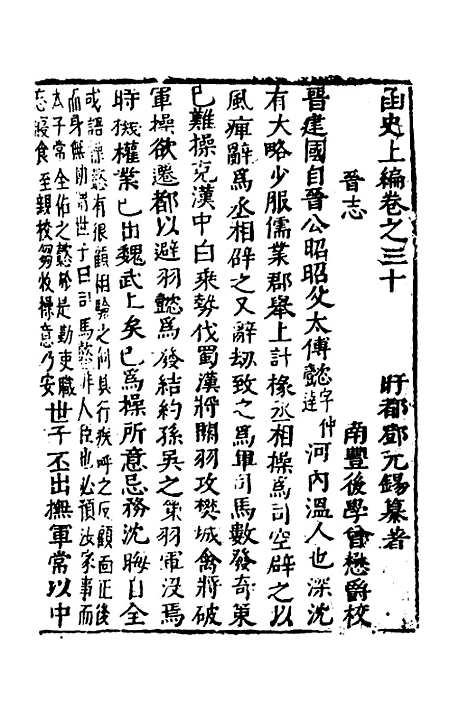 函史上編卷之三十
盱郡鄧元錫纂著
晉志
南豐後學曾懋爵校
晉建國自晉公昭昭父太傅懿字仲達河內溫人也深沈
有大略少服儒業郡舉上計掾丞相操爲司空辟之以
風痺辭爲丞相辟之又辭劾致之爲軍司馬數發奇策
已難操克漢中自乘勢伐蜀漢將關羽攻樊城禽將破
軍操欲遷都以避羽懿爲發結約孫吳之策羽軍沒焉
時機權業已出魏武上矣已爲操所意忌務沈晦自全
或語操懿有狼顧相驗之何其行疾呼之反顧面正後
而身無動謂世子曰司馬懿非人臣也必預汝家事而
本子常全佑之懿於是勤吏職
忘寢食至親校芻牧操意乃安
世子丕出撫軍常以中